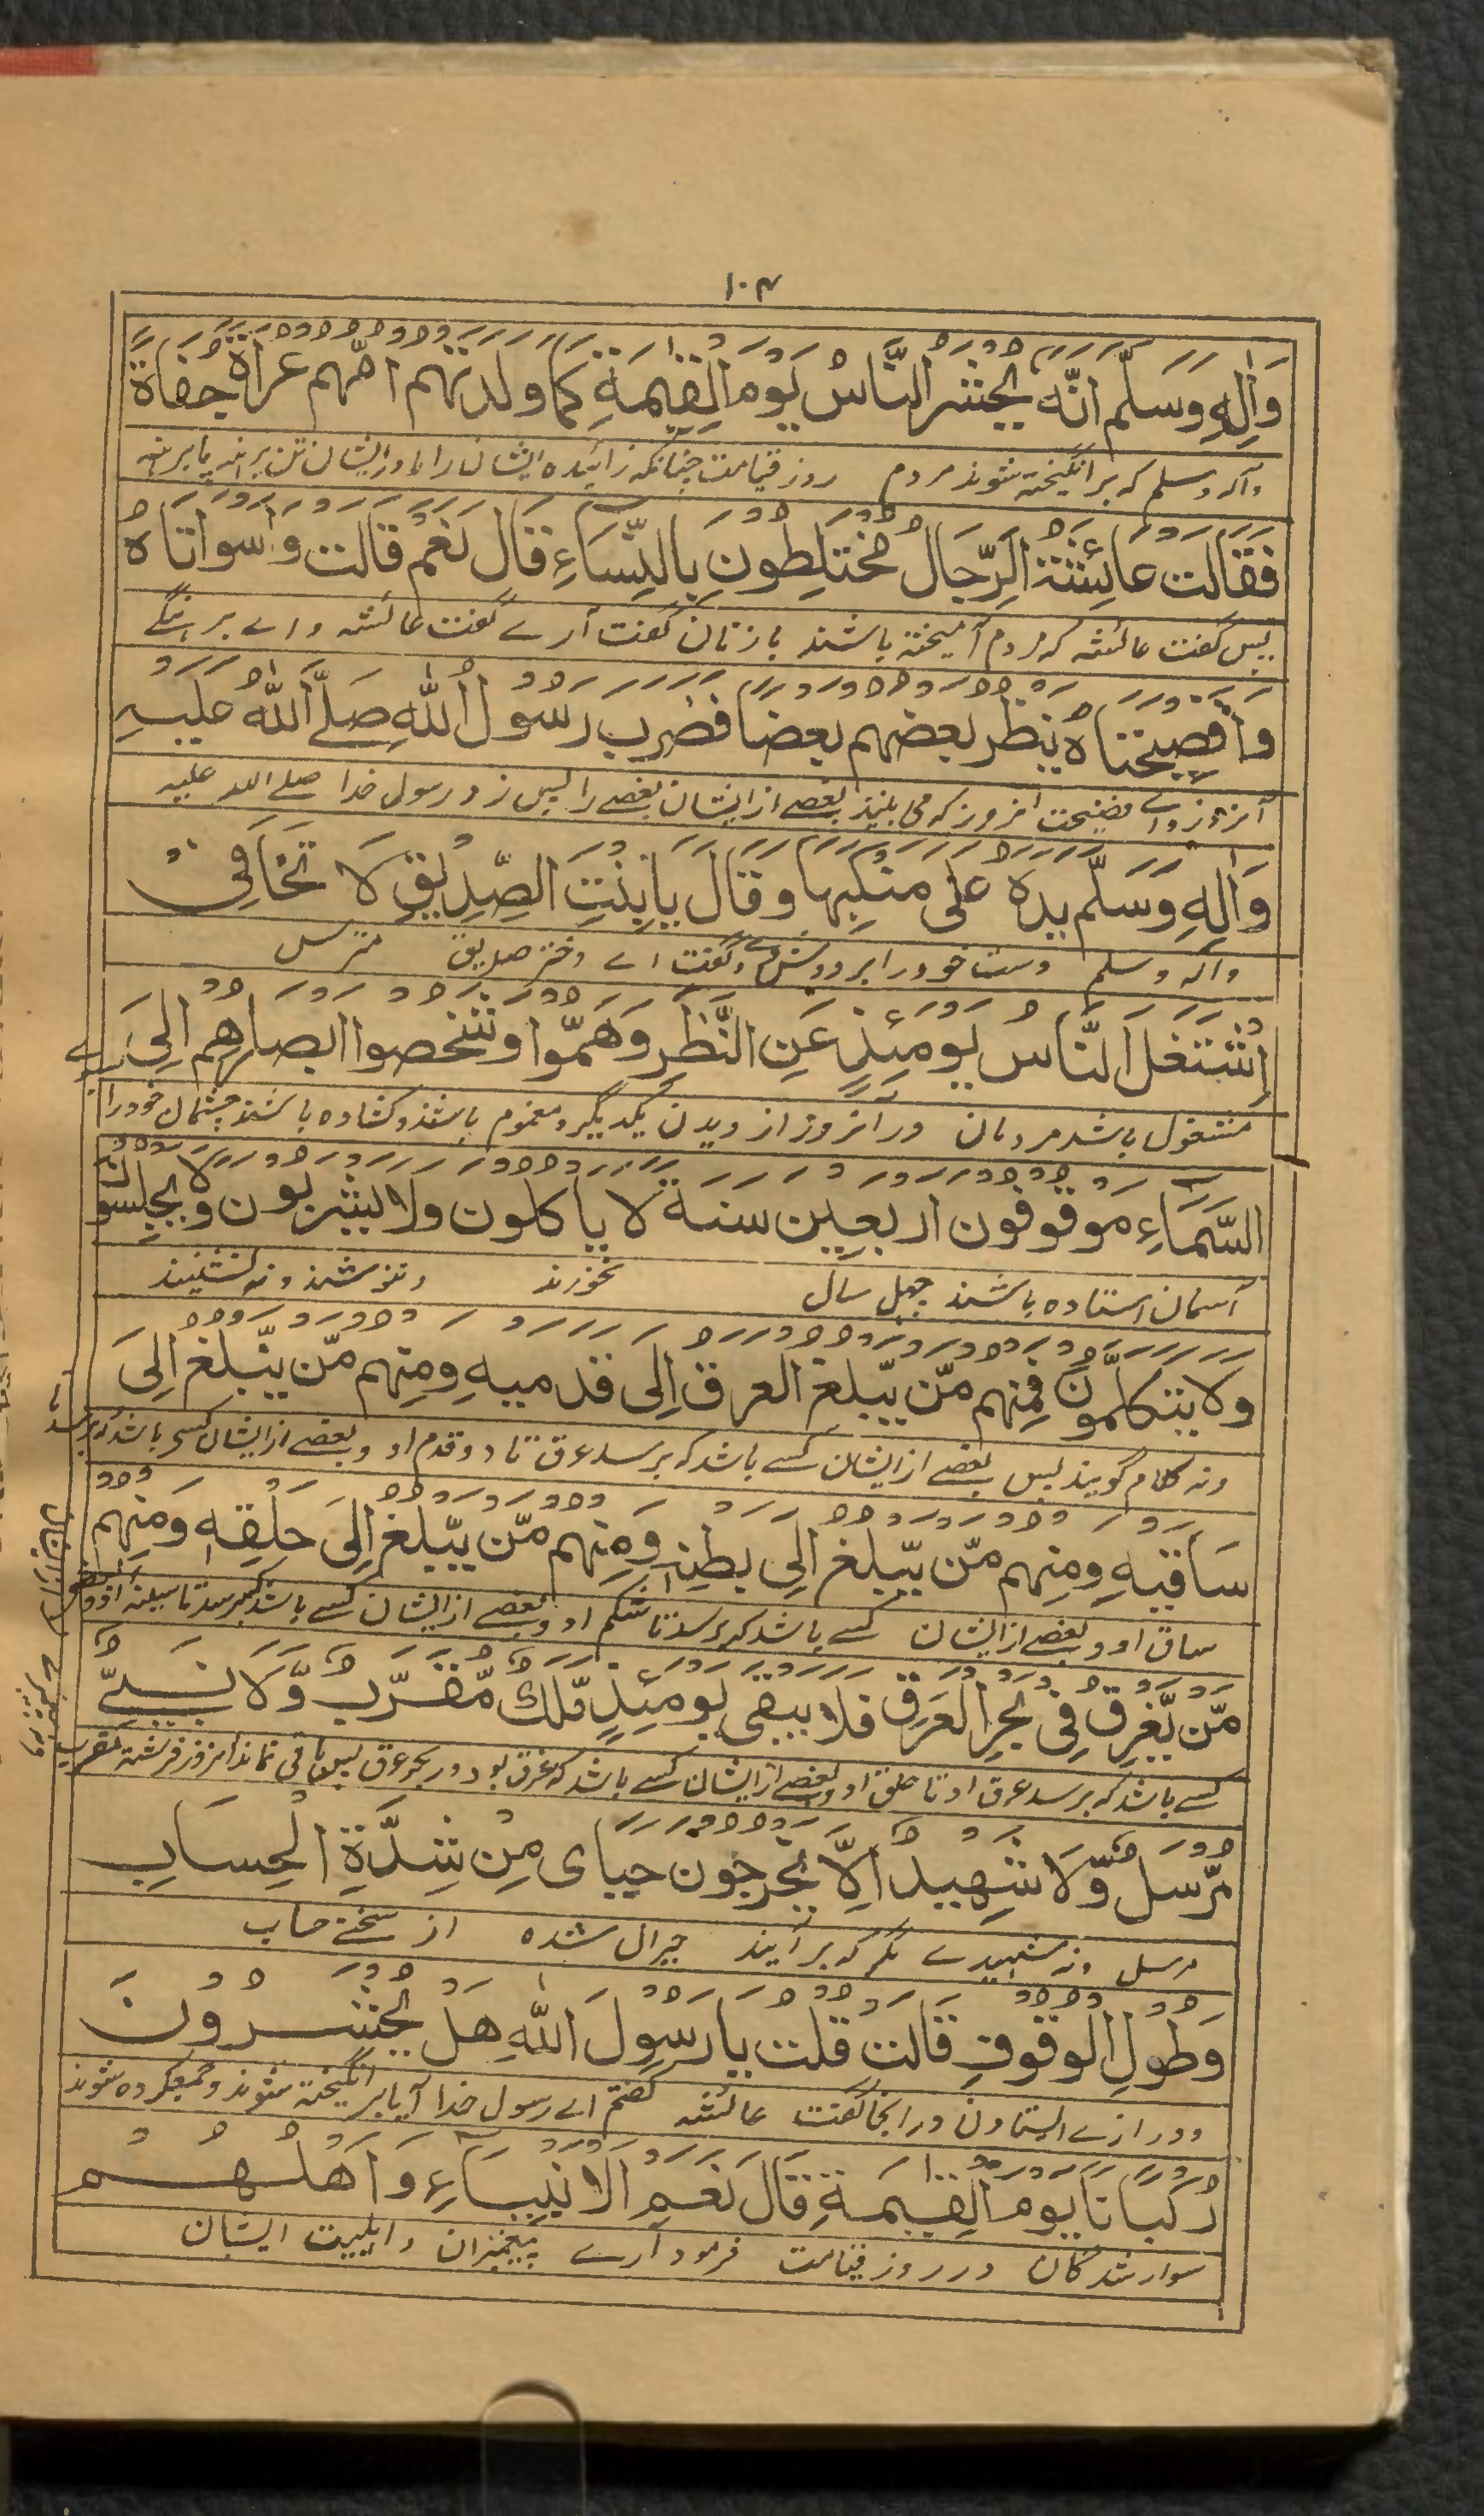 ۱۰۴
وَاٰلِهٖ وَسَلَّمَ اَنَّهٗ یُحْشَرُ النَّاسُ یَوْمَ الْقِیٰمَةِ کَمَا وَلَدَتْهُمْ اُمُّهُمْ عُرَاةً حُفَاةً
وآله وسلم که برانگیخته شوند مردم روز قیامت چنانکه زائیده ایشان را مادر ایشان تن برہنه پا برہنه
فَقَالَتْ عَائِشَةُ اَلرِّجَالُ مُخْتَلِطُوْنَ بِالنِّسَاءِ قَالَ نَعَمْ قَالَتْ وَاسَوْاَتَاهُ
پس گفت عائشه که مردم آمیخته باشند با زنان گفت آرے گفت عائشه واے برہنگے
وَافَضِیْحَتَاهُ یَنْظُرُ بَعْضُهُمْ بَعْضًا فَضَرَبَ رَسُوْلُ اللّٰهِ صَلَّى اللّٰهُ عَلَیْهِ
آنروز واے فضیحت آنروز که می بینند بعضے از ایشان بعضے را پس زد رسول خدا صلے الله علیه
وَاٰلِهٖ وَسَلَّمَ یَدَهٗ عَلٰی مَنْکِبِهَا وَقَالَ یَا بِنْتَ الصِّدِّیْقِ لَا تَخَافِیْ
وآله وسلم دست خود را بر دوش وے وگفت اے دختر صدیق مترس
اُشْتُغِلَ النَّاسُ یَوْمَئِذٍ عَنِ النَّظَرِ وَهَمُّوْا وَشَخَصُوْا اَبْصَارَهُمْ اِلَى
مشغول باشد مردمان در آنروز از دیدن یکدیگر و مغموم باشند و کشاده باشند چشمان خود را سوے
السَّمَاءِ مَوْقُوْفُوْنَ اَرْبَعِیْنَ سَنَةً لَا یَاْکُلُوْنَ وَلَا یَشْرَبُوْنَ وَلَا یَجْلِسُوْنَ
آسمان استاده باشند چهل سال نخورند و ننوشند و نه نشینند
وَلَا یَتَکَلَّمُوْنَ فَمِنْهُمْ مَّنْ یَّبْلُغُ الْعَرَقُ اِلٰی قَدَمَیْهِ وَمِنْهُمْ مَّنْ یَّبْلُغُ اِلٰی
ونه کلام گویند پس بعضے از ایشان کسے باشد که برسد عرق تا دو قدم او و بعضے از ایشان کسے باشد که برسد تا
سَاقَیْهِ وَمِنْهُمْ مَّنْ یَّبْلُغُ اِلٰی بَطْنِهٖ وَمِنْهُمْ مَّنْ یَّبْلُغُ اِلٰی حَلْقِهٖ وَمِنْهُمْ
ساق او و بعضے از ایشان کسے باشد که برسد تا شکم او و بعضے از ایشان کسے باشد که برسد تا سینه او
مَّنْ یَّغْرِقُ فِیْ بَحْرِ الْعَرَقِ فَلَا یَبْقٰی یَوْمَئِذٍ مَّلَكٌ مُّقَرَّبٌ وَّلَا نَبِیٌّ
کسے باشد که برسد عرق او تا حلق او و بعضے از ایشان کسے باشد که غرق بود در بحر عرق پس باقی نماند آنروز فرشته مقرب
مُّرْسَلٌ وَّلَا شَهِیْدٌ اِلَّا یَخْرُجُوْنَ حَیَارٰی مِنْ شِدَّةِ الْحِسَابِ
مرسل ونه شهیدے مگر که بر آیند حیران شده از سختے حساب
وَطُوْلِ الْوُقُوْفِ قَالَتْ قُلْتُ یَا رَسُوْلَ اللّٰهِ هَلْ یُحْشَرُوْنَ
ودرازے ایستادن در انجا گفت عائشه گفتم اے رسول خدا آیا برانگیخته شوند وجمع کرده شوند
رُکْبَانًا یَوْمَ الْقِیٰمَةِ قَالَ نَعَمِ الْاَنْبِیَاءِ وَاَهْلُهُمْ
سوار شدگان در روز قیامت فرمود آرے پیغمبران واہلبیت ایشان